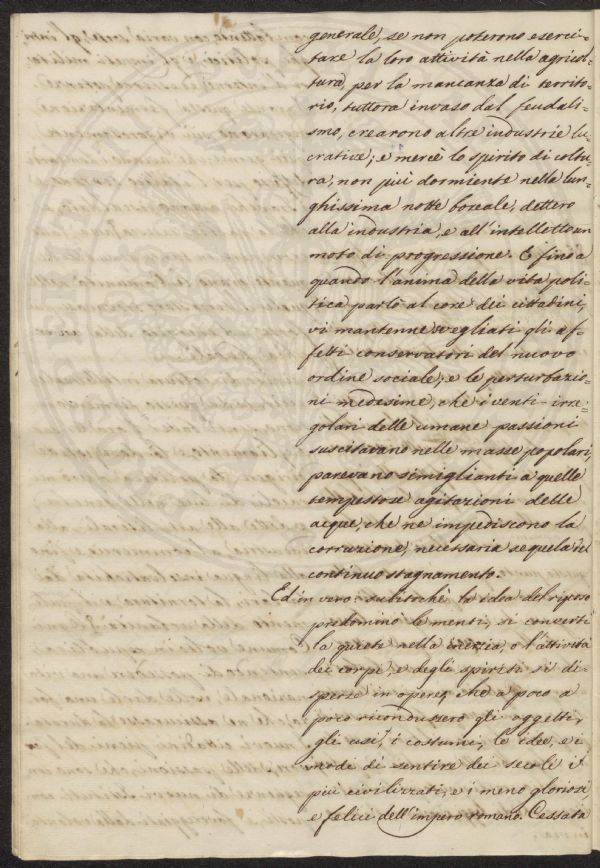 generale, se non poterono eserci-
tare la loro attività nella agricol-
tura, per la mancanza di territo-
rio, tuttora invaso dal feudali-
smo, crearono altre industrie lu-
crative; e mercè lo spirito di coltu-
ra, non più dormiente nella lun-
ghissima notte boreale, dettero
alla industria, e all'intelletto un
moto di progressione. E fino a
quando l'anima della vita poli-
tica parlò al core dei cittadini,
vi mantenne svegliati gli af-
fetti conservatori del nuovo
ordine sociale; e le perturbazio-
ni medesime, che i venti irre-
golari delle umane passioni
suscitavano nelle masse popolari,
parevano simiglianti a quelle
tempestose agitazioni delle
acque, che ne impediscono la
corruzione, necessaria sequela del
continuo stagnamento.
Ed in vero subitochè la idea del riposo
predominò le menti, si convertì
la quiete nella inerzia, o l'attività
dei corpi, e degli spiriti si di-
sperse in opere, che a poco a
poco ricondussero gli oggetti,
gli usi, i costumi, le idee, e i
modi di sentire dei secoli i
più civilizzati, e i meno gloriosi
e felici dell'impero romano. Cessata